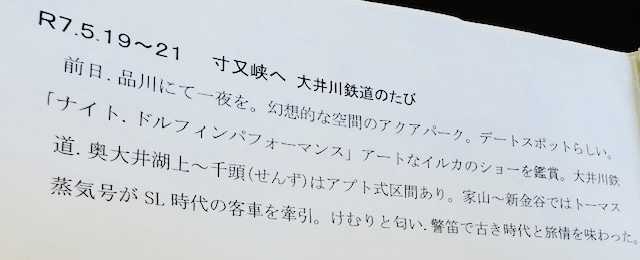 R7.5.19～21 寸又峡へ 大井川鉄道のたび
前日．品川にて一夜を。幻想的な空間のアクアパーク。デートスポットらしい。
「ナイト．ドルフィンパフォーマンス」アートなイルカのショーを鑑賞。大井川鉄
道．奥大井湖上～千頭(せんず)はアプト式区間あり。家山～新金谷ではトーマス
蒸気号がSL時代の客車を牽引。けむりと匂い．警笛で古き時代と旅情を味わった。